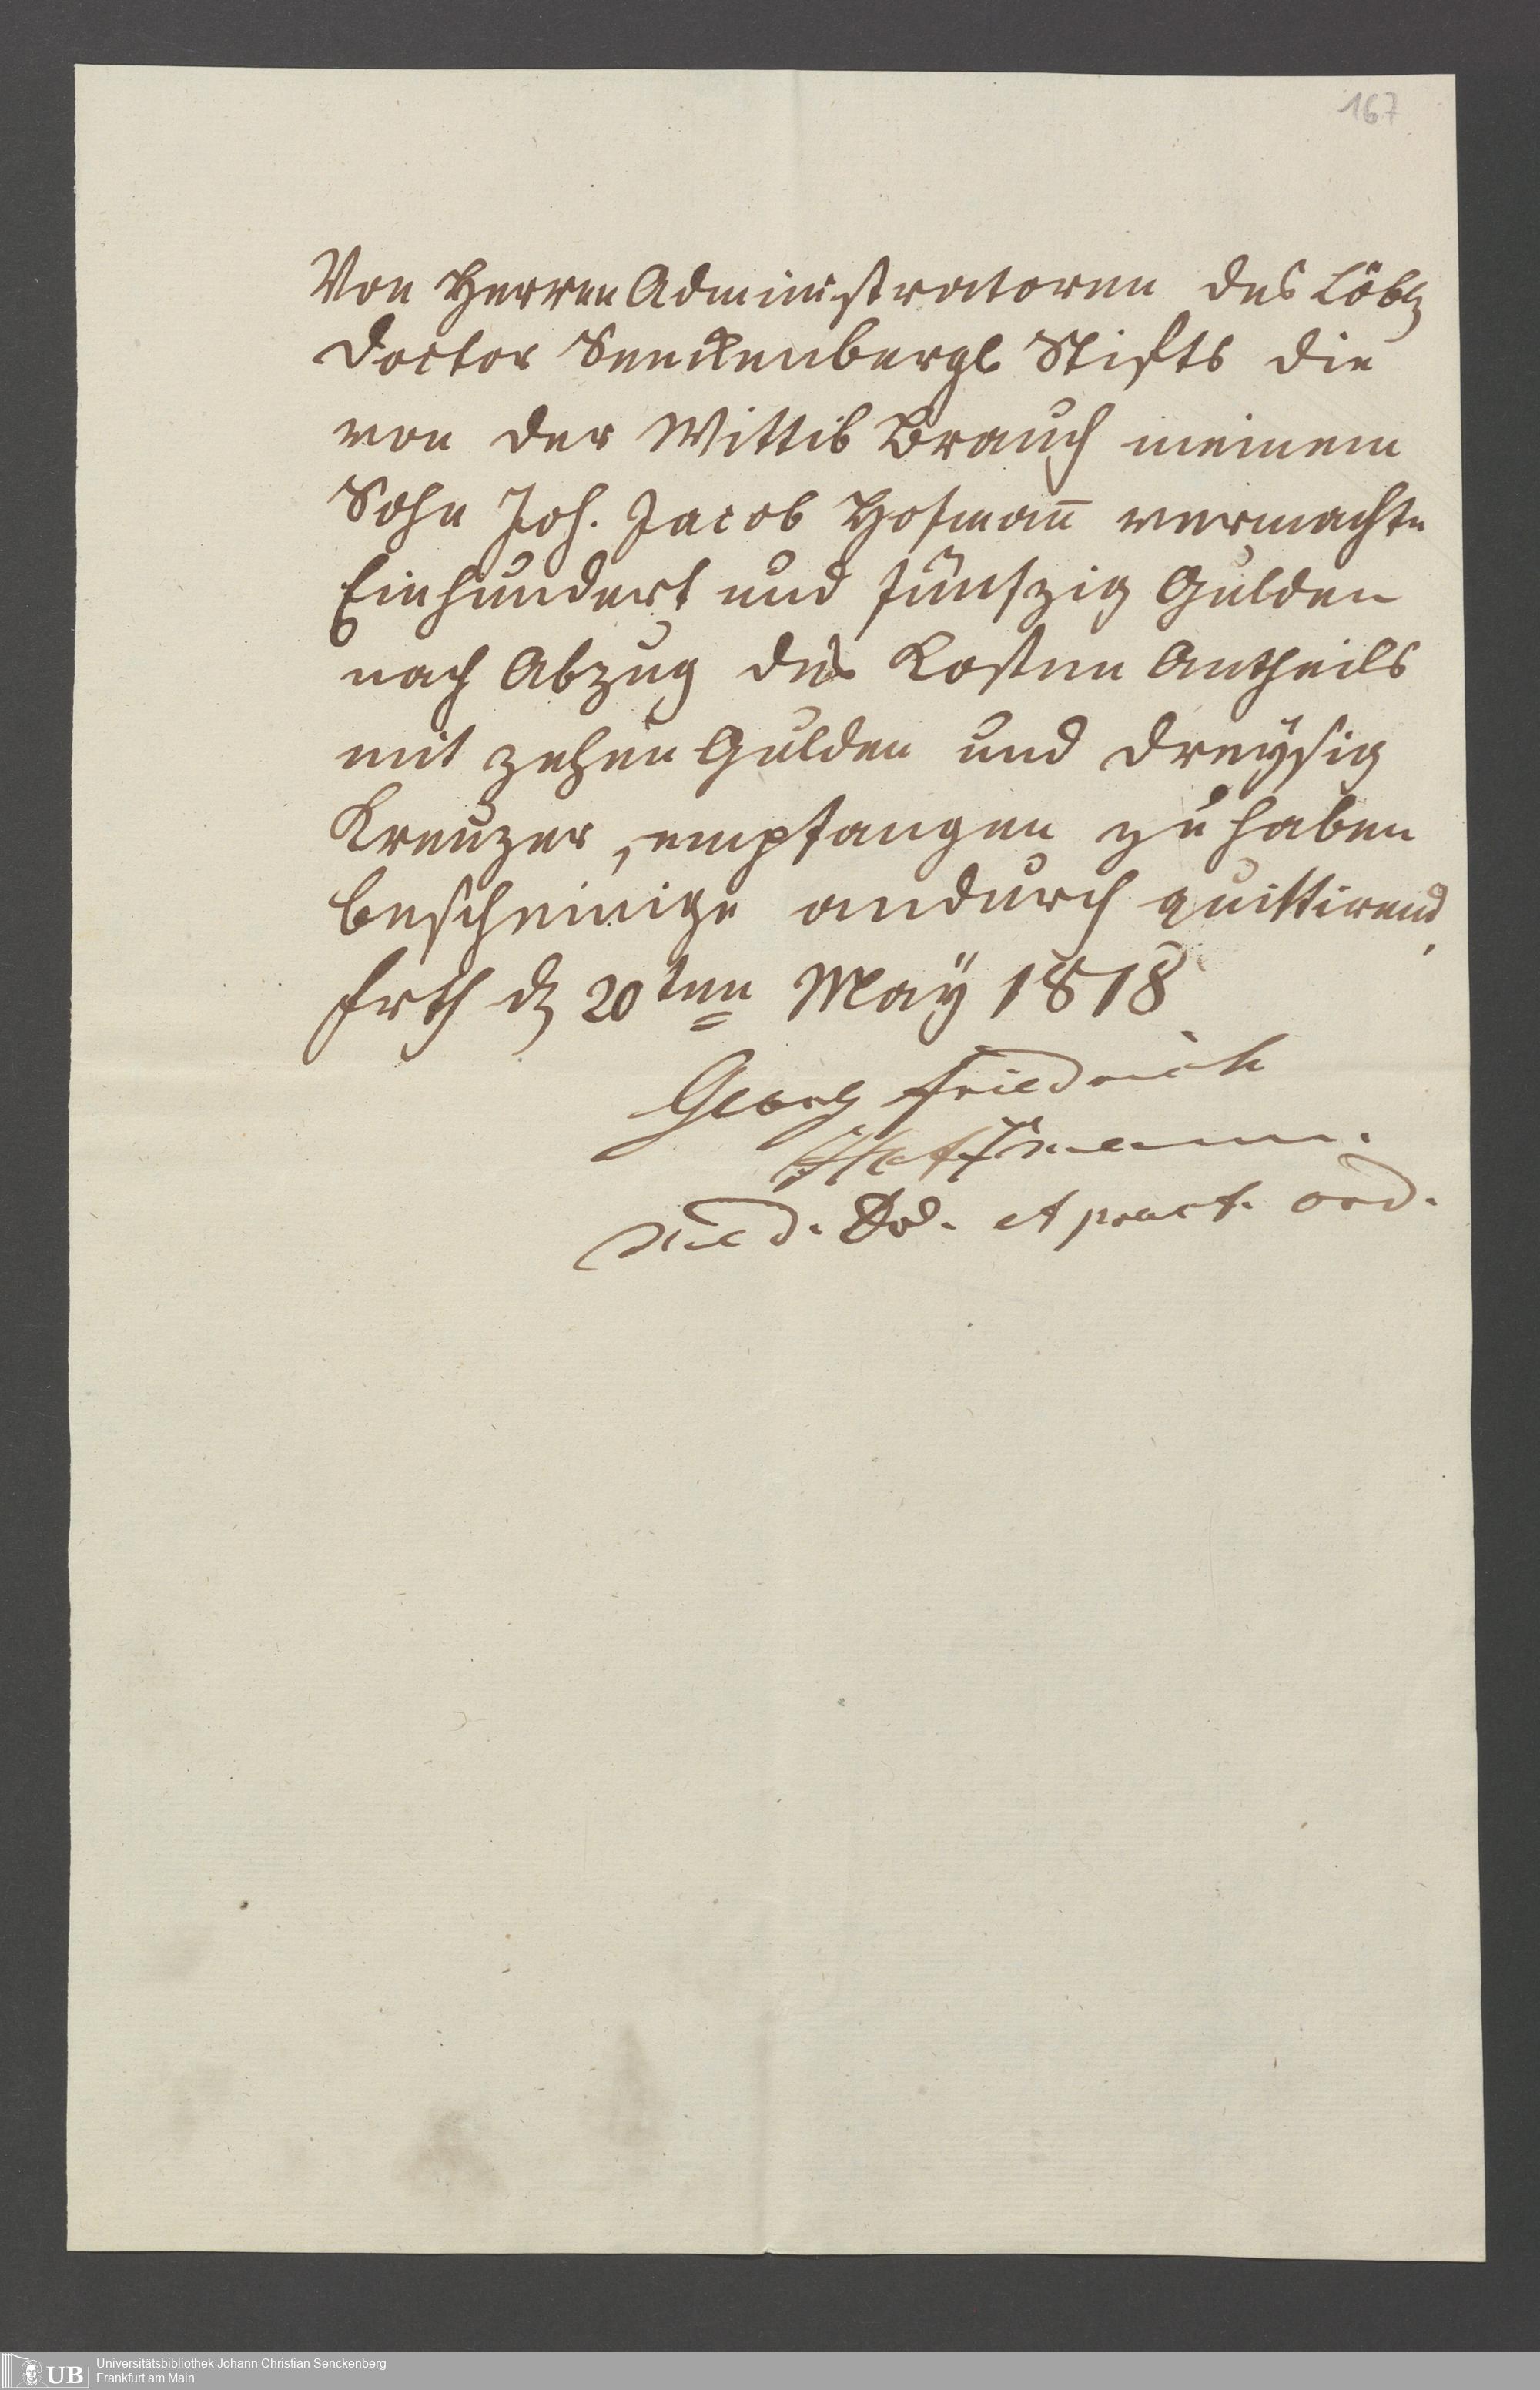 167
Von Herren Administratoren des Löbl
Doctor Senckenbergl Stifts die
von der Wittib Brauch meinem
Sohn Joh. Jacob Hofmañ vermachte
Einhundert und fünfzig Gulden
nach Abzug des Kosten Antheils
mit zehen Gulden und dreÿsig
Kreuzer, empfangen zu haben
bescheinige andurch quittirend,
Frth d 20ten Maÿ 1818
Georg Friedrich
Hoffmann.
Med. Dr. et pract. ord.
UB
Universitätsbibliothek Johann Christian Senckenberg
Frankfurt am Main